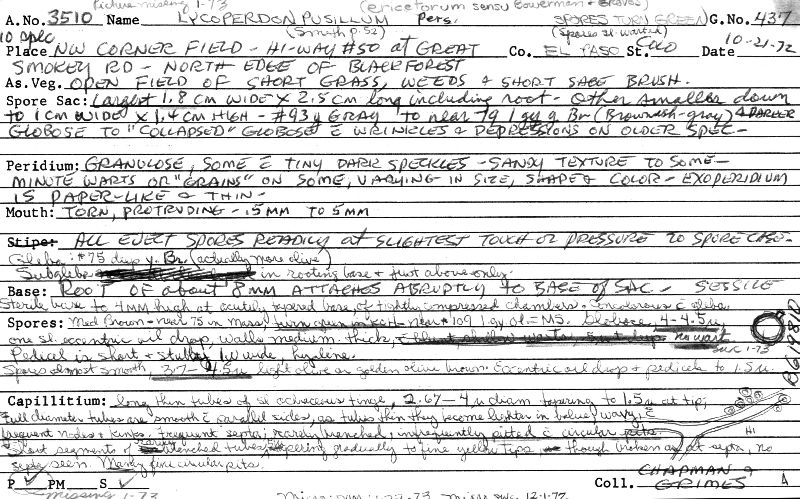 Picture missing 1-73 (ericetorum sensu Bowerman & Groves)
A. No. 3510 Name LYCOPERDON PUSILLUM Pers. SPORES TURN GREEN G. No. 437
10 spec (Smith p. 52) (Spores sl. warted)
Place NW CORNER FIELD - HI-WAY #50 at GREAT Co. EL PASO St. COLO Date 10-21-72
SMOKEY RD - NORTH EDGE OF BLACK FOREST
As. Veg. OPEN FIELD OF SHORT GRASS, WEEDS & SHORT SAGE BRUSH.
Spore Sac: Largest 1.8 cm WIDE X 2.5 cm long including root - Other smaller down
to 1 cm WIDE X 1.4 cm HIGH - #93 y GRAY to near 79 l gy y Br (Brownish-gray) & DARKER
GLOBOSE TO "COLLAPSED" GLOBOSE c WRINKLES & DEPRESSIONS ON OLDER SPEC-
Peridium: GRANULOSE, SOME c TINY DARK SPECKLES - SANDY TEXTURE TO SOME -
MINUTE WARTS OR "GRAINS" ON SOME, VARYING IN SIZE, SHAPE & COLOR - EXOPERIDIUM
IS PAPER-LIKE & THIN -
Mouth: TORN, PROTRUDING - .5 MM TO 5 MM
Stipe: ALL EJECT SPORES READILY at SLIGHTEST TOUCH OR PRESSURE TO SPORE CASE.
Gleba: #75 deep y. Br. (actually more olive)
Subgleba in rooting base & just above only.
Base: ROOT OF about 8 MM ATTACHES ABRUPTLY to BASE of SAC - SESSILE
Sterile base to 4 MM high at acutely tapered base, of tightly compressed chambers. Concolorous c gleba.
Spores: Med Brown - near 75 in mass, near #109 l gy ol = MS. Globose, 4-4.5u,
one sl. eccentric oil drop, walls medium thick, no wart
Pedicel is short & stubby 1u wide, hyaline. Swc 1-73
Spores almost smooth, 3.7-4.5u light olive or golden olive brown. Eccentric oil drop & pedicels to 1.5u.
Capillitium: long thin tubes of sl ochraceous tinge, 2.67-4u diam tapering to 1.5u at tip;
Full diameter tubes are smooth c parallel sides, as tubes thin they become lighter in value, wavy, c
frequent nodes & kinks, infrequent septa; rarely branched; infrequently pitted c circular pits.
Short segments of branched tubes, tapering gradually to fine yellow tips - though broken at septa, no
septa seen. Many fine circular pits.
P PM S Coll. CHAPMAN &
GRIMES
Missing 1-73